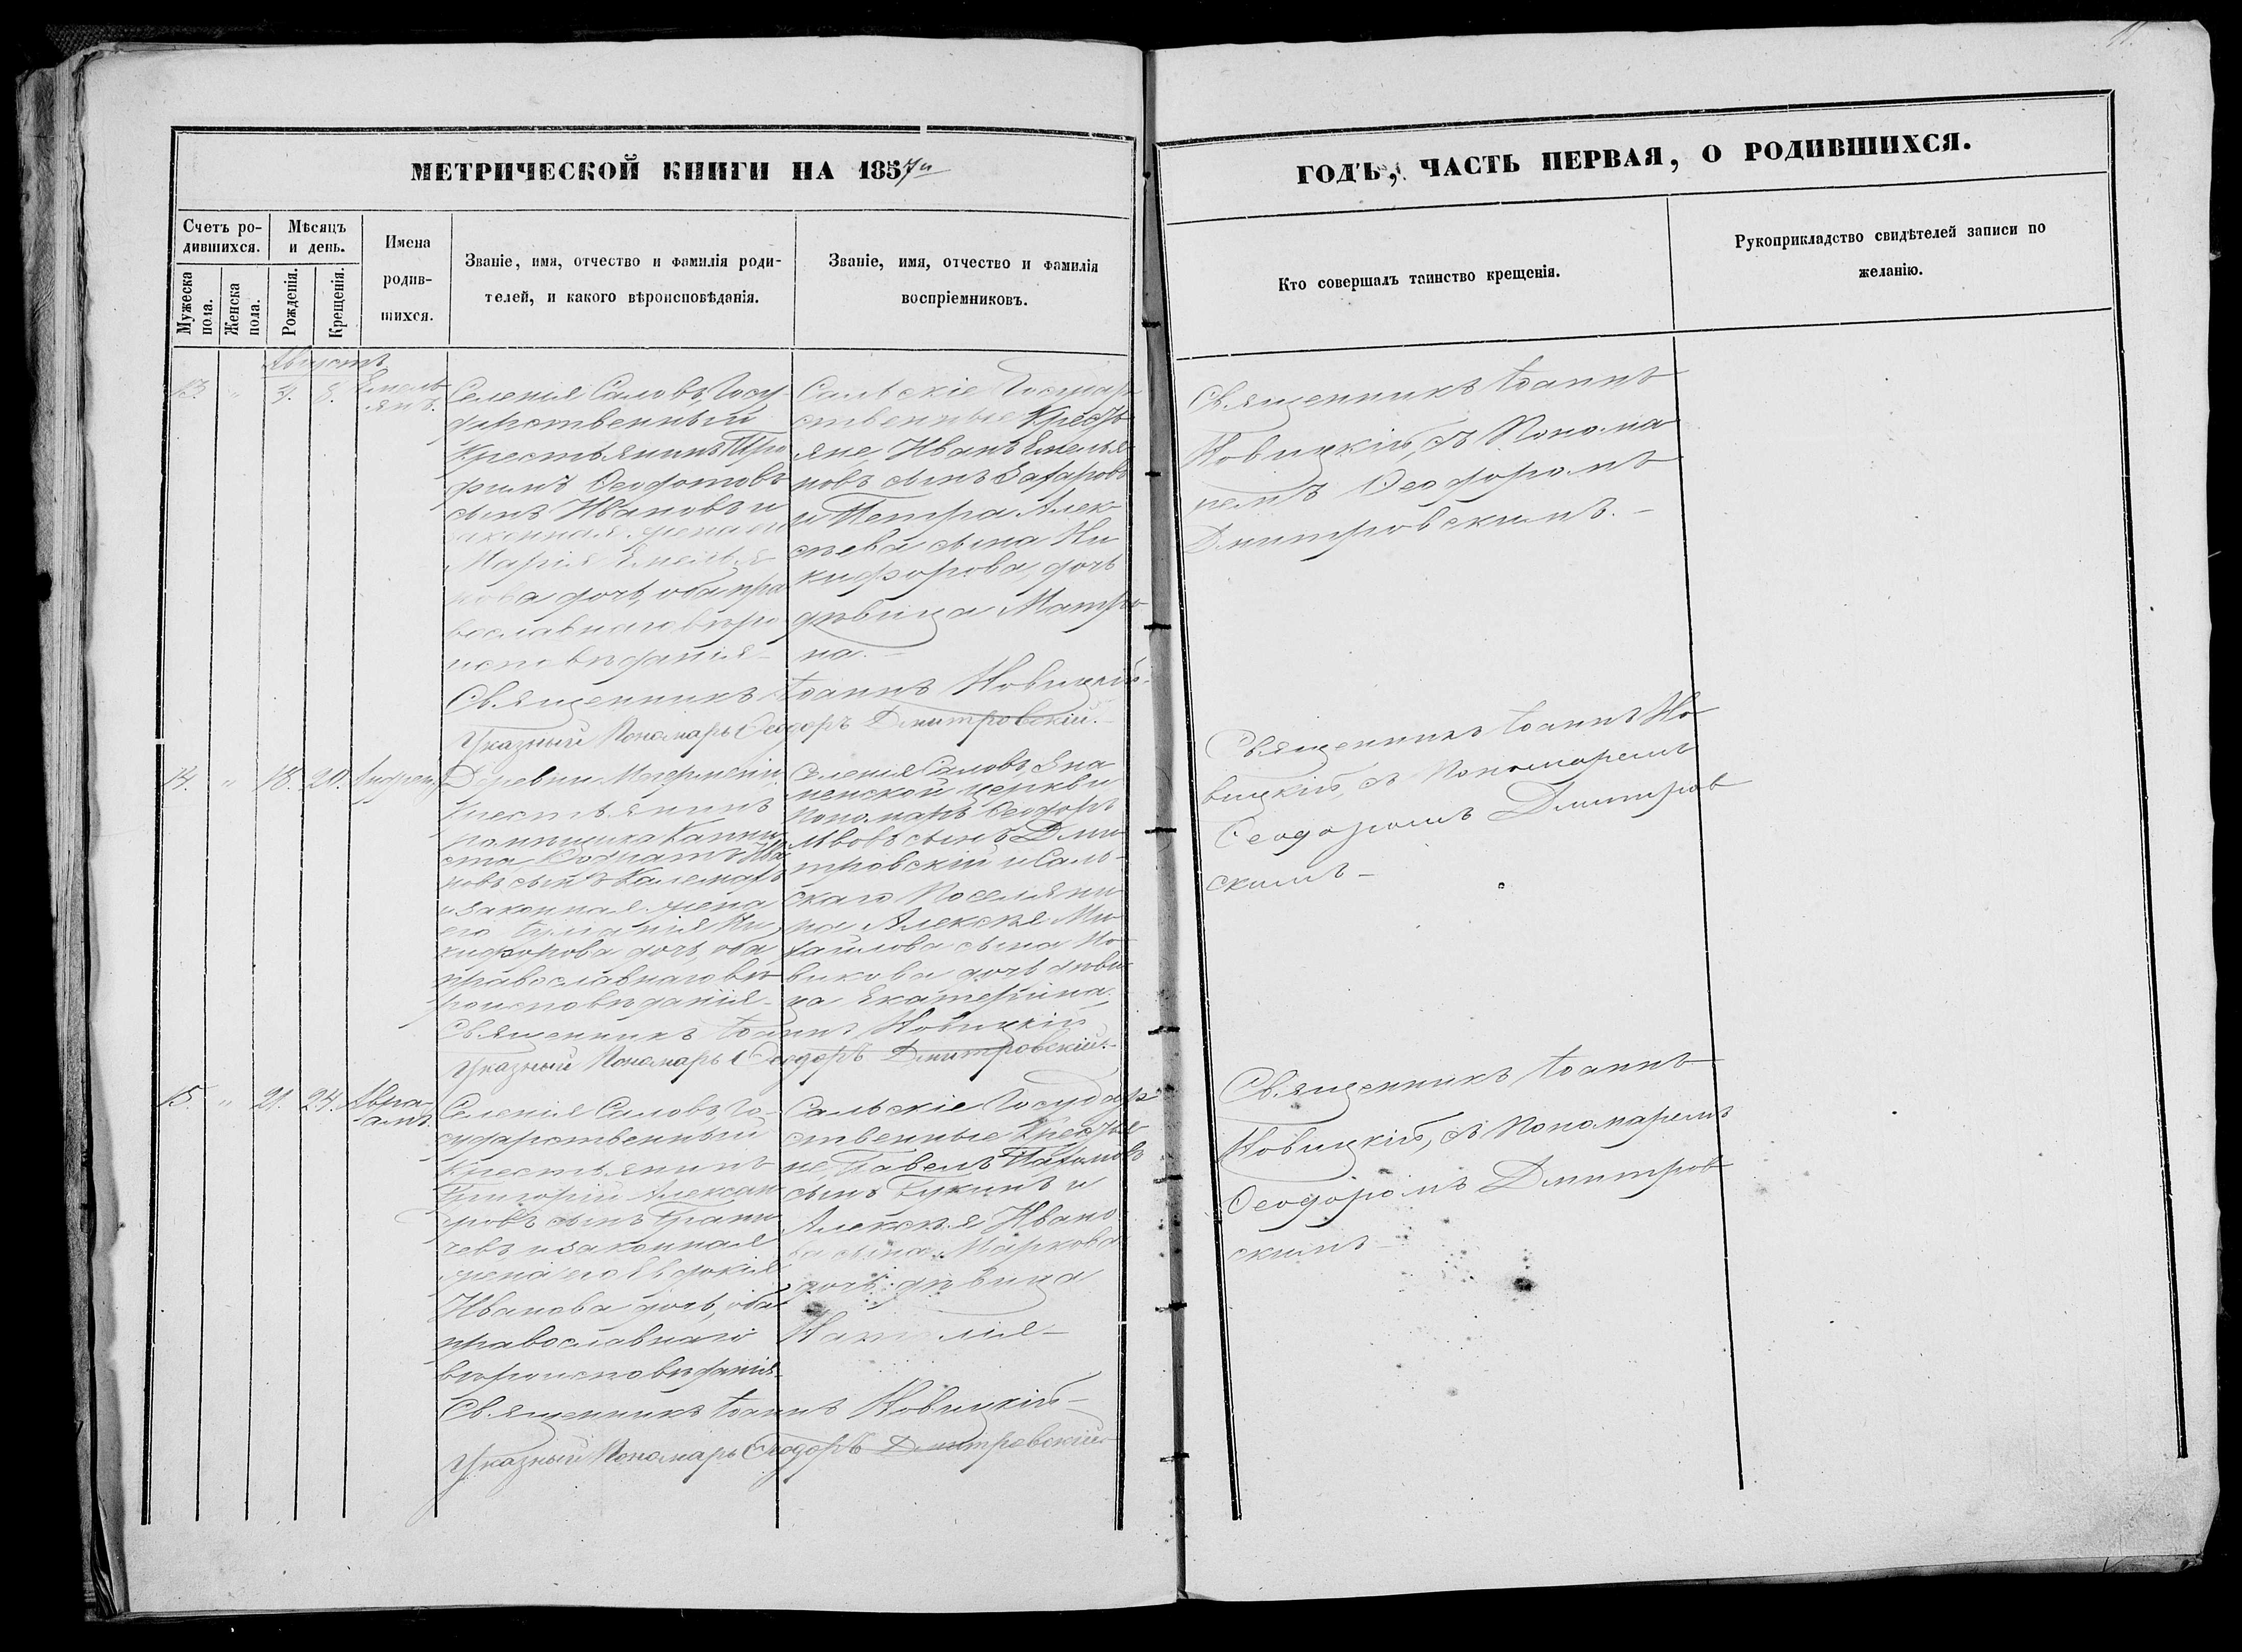 11.
МЕТРИЧЕСКОЙ КНИГИ НА 1857й
ГОДЪ, ЧАСТЬ ПЕРВАЯ, О РОДИВШИХСЯ.
Счетъ ро-
дившихся.
Мужеска пола.
Женска пола.
Мѣсяцъ
и день.
Рожденія.
Крещенія.
Имена
родив-
шихся.
Званіе, имя, отчество и фамилія роди-
телей, и какого вѣроисповѣданія.
Званіе, имя, отчество и фамилія
воспріемниковъ.
Кто совершалъ таинство крещенія.
Рукоприкладство свидѣтелей записи по
желанію.
Августъ
13. " 8. Емель-
янъ.
Селенія Саловъ, Госу-
дарственный
Крестьянинъ Тро-
фимъ Ѳеодотовъ
сынъ Ивановъ и
законная жена его
Марія Емелья-
нова дочь, оба пра-
вославнаго вѣро-
исповѣданія
Сальскіе Государ-
ственные Кресть-
яне Иванъ Емелья-
новъ сынъ Захаровъ
и Петра Алек-
сѣева сына Ни-
кифорова, дочь
дѣвица Матро-
на.
Священникъ Іоаннъ
Новицкій, съ Понома-
ремъ Ѳеодоромъ
Дмитровскимъ.
Священникъ Іоаннъ Новицкій
Указный Пономарь Ѳеодоръ Дмитровскій.
14. " 18. 20. Андрей
Деревни
Крестьянинъ
помѣщика
Ива-
новъ сынъ
и законная жена
его Ни-
кифорова дочь, оба
православнаго вѣ-
роисповѣданія
Селенія Саловъ, Зна-
менской церкви
Пономарь Ѳеодоръ
Львовъ сынъ Дми-
тровскій и Саль-
скаго Поселяни-
на Алексѣя Ми-
хайлова сына Но-
викова дочь дѣви-
ца Екатерина.
Священникъ Іоаннъ Но-
вицкій, съ Пономаремъ
Ѳеодоромъ Дмитров-
скимъ
Священникъ Іоаннъ Новицкій
Указный Пономарь Ѳеодоръ Дмитровскій.
15. " 21. 24. Авра-
амъ.
Селенія Саловъ, Го-
сударственный
Крестьянинъ
Григорій Алексан-
дровъ сынъ
и законная
жена его Евдокія
Иванова дочь, оба
православнаго
вѣроисповѣданія
Сальскіе Государ-
ственные Крестья-
не Павелъ Пахомовъ
сынъ и
Алексѣя Ивано-
ва сына Маркова
дочь дѣвица
Наталія
Священникъ Іоаннъ
Новицкій, съ Пономаремъ
Ѳеодоромъ Дмитров-
скимъ
Священникъ Іоаннъ Новицкій
Указный Пономарь Ѳеодоръ Дмитровскій